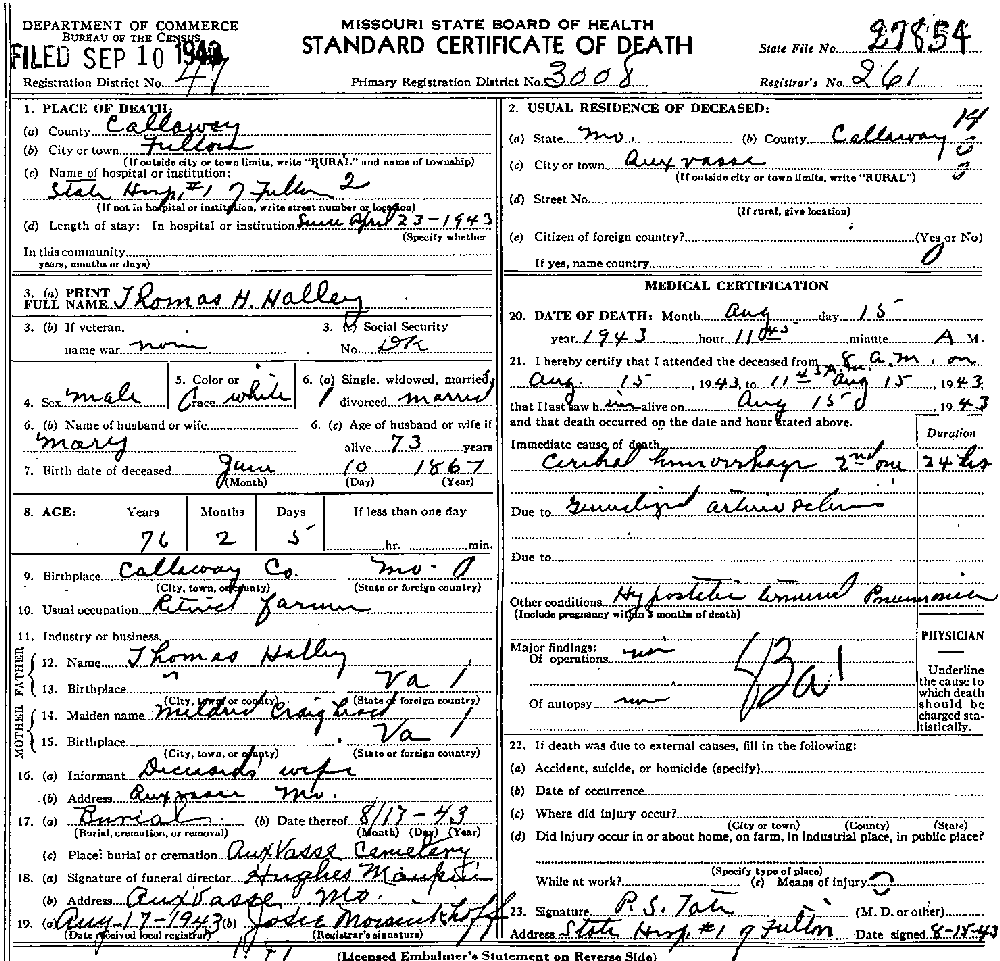 DEPARTMENT OF COMMERCE
BUREAU OF THE CENSUS
MISSOURI STATE BOARD OF HEALTH
STANDARD CERTIFICATE OF DEATH
FILED SEP 10 1943
State File No. 27854
Registration District No. 47
Primary Registration District No. 3008
Registrar's No. 261
1. PLACE OF DEATH:
(a) County Callaway
(b) City or town Fulton
(If outside city or town limits, write "RURAL" and name of township)
(c) Name of hospital or institution:
State Hosp. #1 of Fulton 2
(If not in hospital or institution, write street number or location)
(d) Length of stay: In hospital or institution Since April 23-1943
(Specify whether
In this community
years, months or days)
2. USUAL RESIDENCE OF DECEASED:
(a) State Mo. (b) County Callaway 14
(c) City or town Auxvasse
(If outside city or town limits, write "RURAL")
(d) Street No.
(If rural, give location)
(e) Citizen of foreign country? (Yes or No)
If yes, name country 0
3. (a) PRINT FULL NAME Thomas H. Halley
3. (b) If veteran, name war none
3. (c) Social Security No. DK
4. Sex male
5. Color or race white
6. (a) Single, widowed, married, divorced married
6. (b) Name of husband or wife Mary
6. (c) Age of husband or wife if alive 73 years
7. Birth date of deceased June 10 1867
(Month) (Day) (Year)
8. AGE: Years Months Days If less than one day
76 2 5 hr. min.
9. Birthplace Callaway Co. Mo. 0
(City, town, or county) (State or foreign country)
10. Usual occupation Retired farmer
11. Industry or business
FATHER
12. Name Thomas Halley
13. Birthplace Va 1
(City, town or county) (State or foreign country)
MOTHER
14. Maiden name Mildred Craighead
15. Birthplace Va 1
(City, town, or county) (State or foreign country)
16. (a) Informant Deceased's wife
(b) Address Auxvasse Mo.
17. (a) Burial (b) Date thereof 8/17-43
(Burial, cremation, or removal) (Month) (Day) (Year)
(c) Place: burial or cremation AuxVasse Cemetery
18. (a) Signature of funeral director Hughes Maupin
(b) Address AuxVasse Mo.
19. (a) Aug-17-1943 (b) Josie
(Date received local registrar) (Registrar's signature)
MEDICAL CERTIFICATION
20. DATE OF DEATH: Month Aug day 15
year 1943 hour 11 45 minute A M.
21. I hereby certify that I attended the deceased from 8 a.m. on
Aug. 15, 1943, to 11 45 A.M. Aug 15, 1943
that I last saw him alive on Aug 15, 1943
and that death occurred on the date and hour stated above.
Duration
Immediate cause of death
Cerebral hemorrhage 2nd one 24 hrs
Due to Generalized arteriosclerosis
Due to
Other conditions Hypostatic terminal Pneumonia
(Include pregnancy within 3 months of death)
Major findings:
Of operations
Of autopsy
83a 1
PHYSICIAN
Underline the cause to which death should be charged statistically.
22. If death was due to external causes, fill in the following:
(a) Accident, suicide, or homicide (specify)
(b) Date of occurrence
(c) Where did injury occur?
(City or town) (County) (State)
(d) Did injury occur in or about home, on farm, in industrial place, in public place?
(Specify type of place)
While at work? (e) Means of injury
23. Signature P. S. Tate (M. D. or other)
Address State Hosp. #1 of Fulton Date signed 8-18-43
(Licensed Embalmer's Statement on Reverse Side)